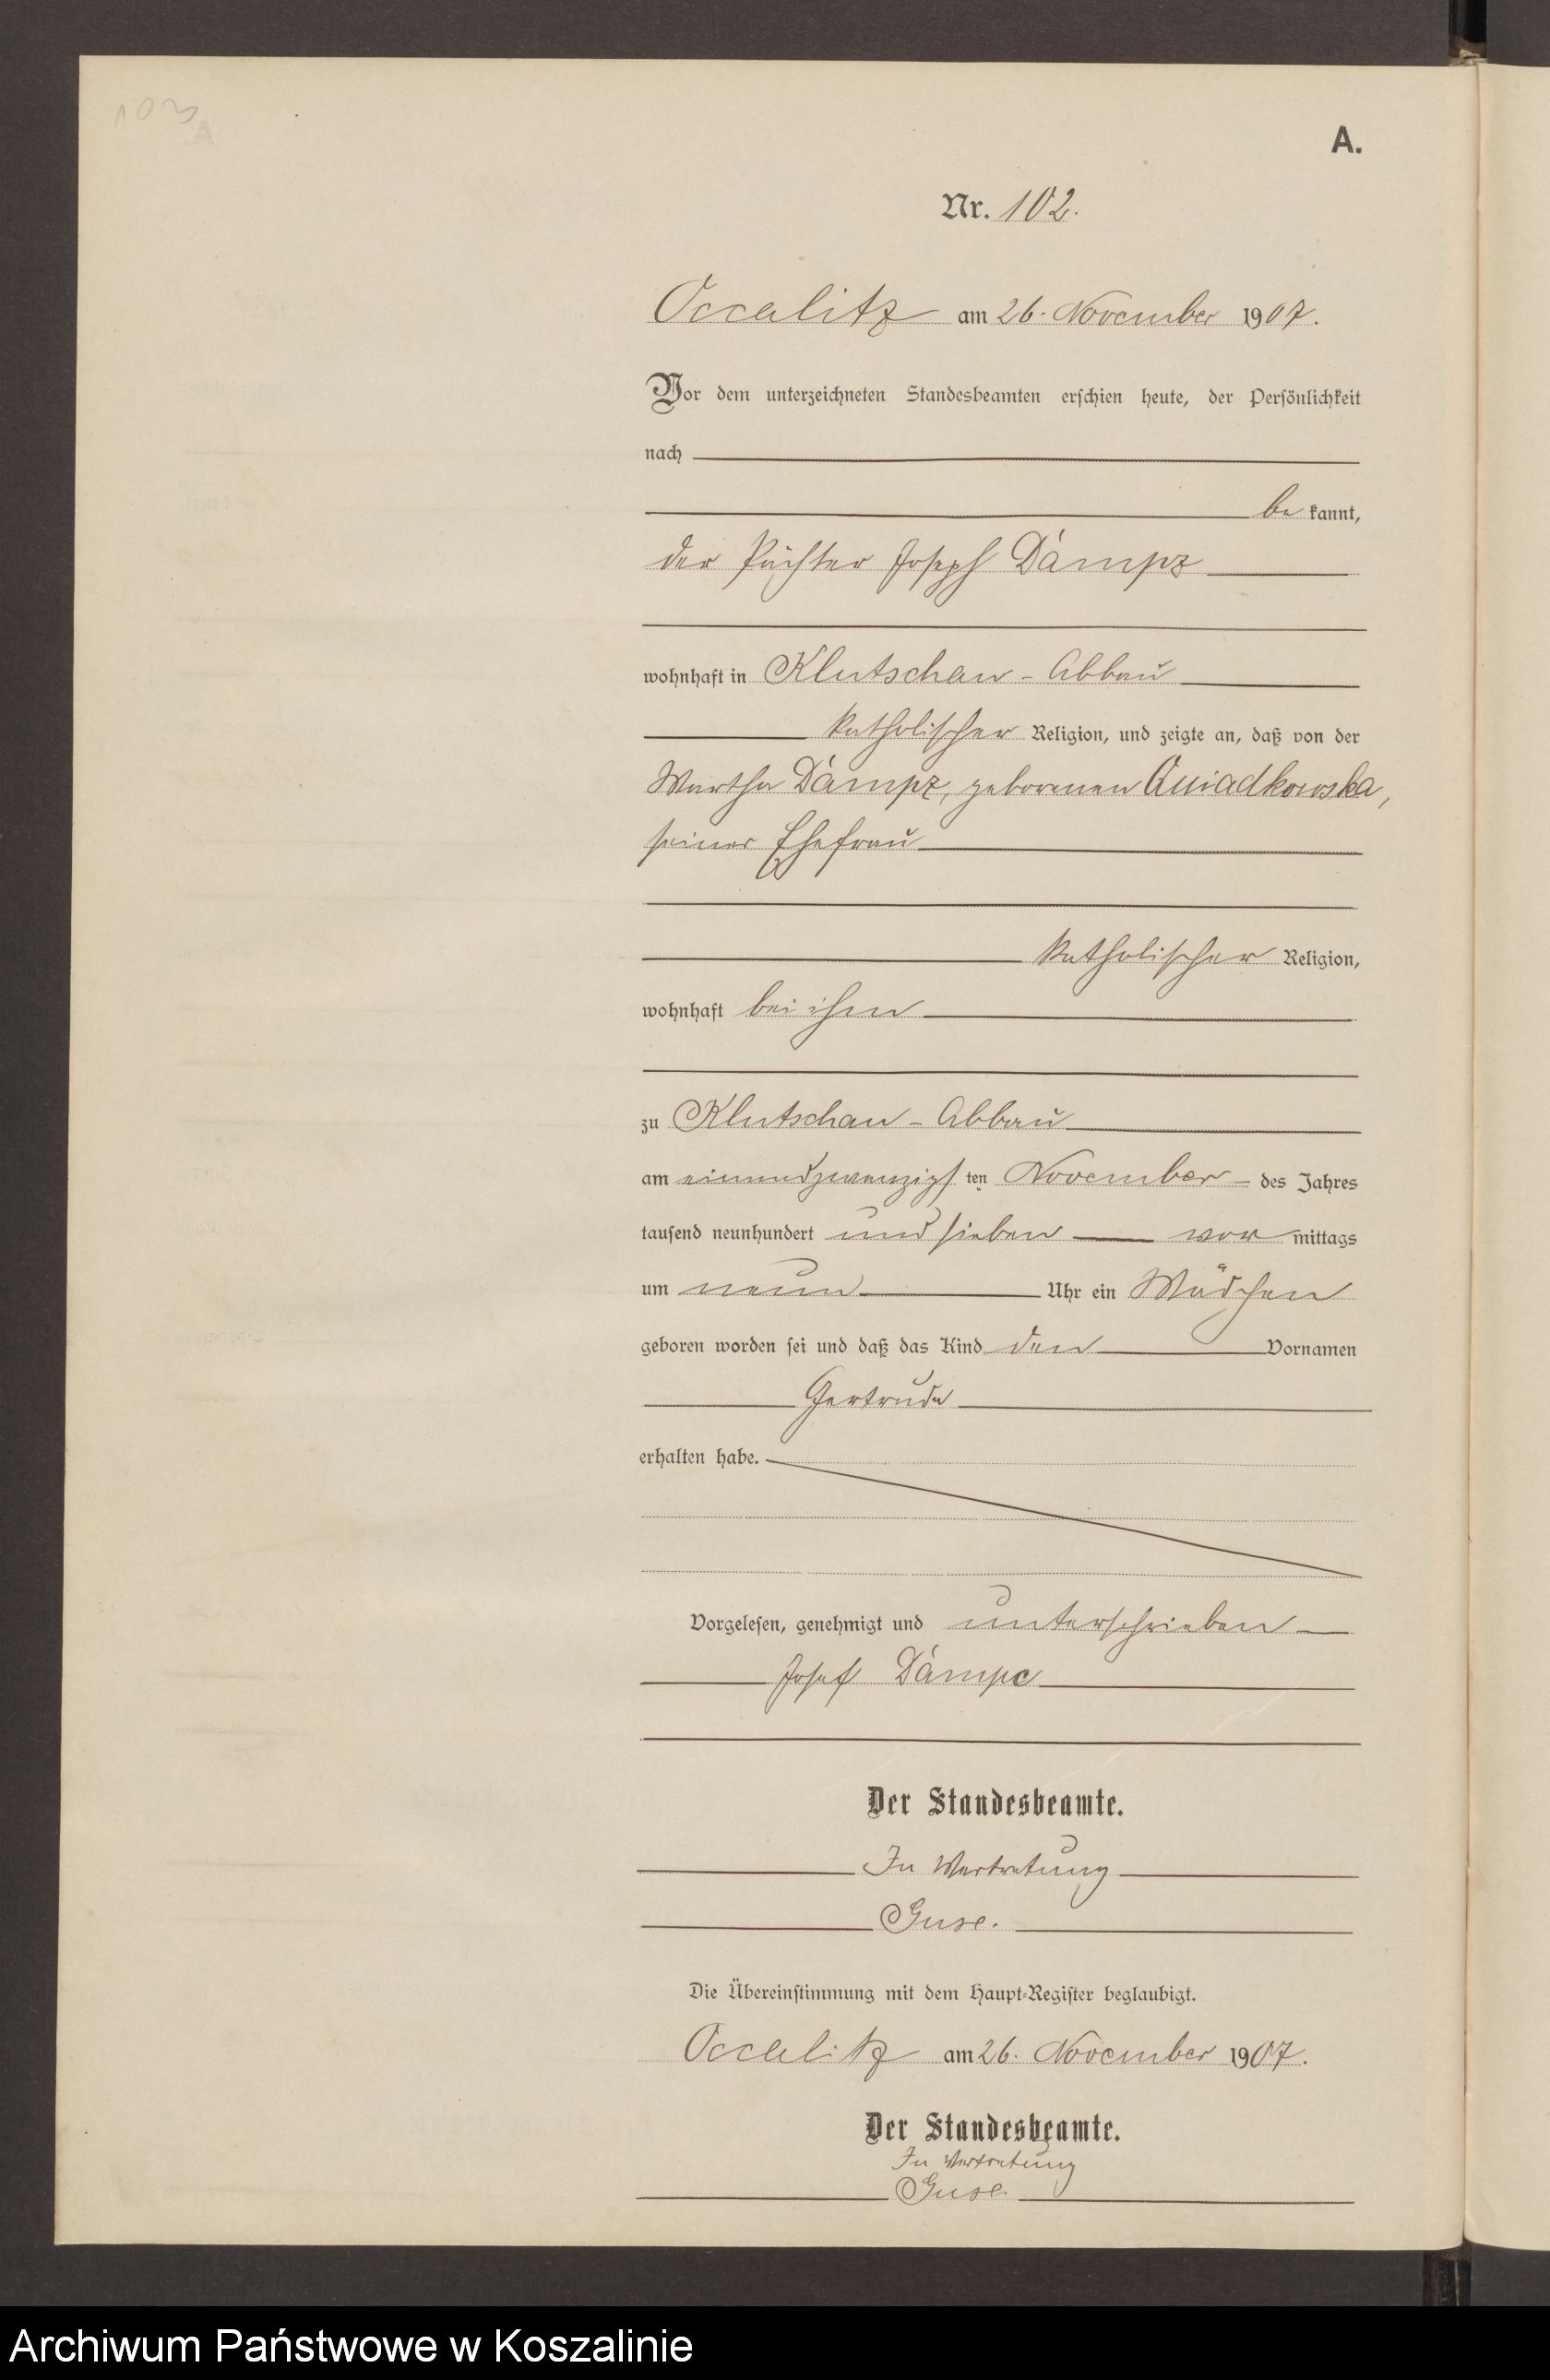 103
A.
Nr. 102.
Occalitz am 26. November 1907.
Vor dem unterzeichneten Standesbeamten erschien heute, der Persönlichkeit
nach
be kannt,
der Pächter Joseph Dámpz
wohnhaft in Klutschau - Abbau
katholischer Religion, und zeigte an, daß von der
Martha Dámpz, geborenen Quiadkowska,
seiner Ehefrau
katholischer Religion,
wohnhaft bei ihm
zu Klutschau - Abbau
am einundzwanzigsten November des Jahres
tausend neunhundert und sieben vor mittags
um neun Uhr ein Mädchen
geboren worden sei und daß das Kind den Vornamen
Gertrude
erhalten habe.
Vorgelesen, genehmigt und unterschrieben
Josef Dámpc
Der Standesbeamte.
In Vertretung
Guse.
Die Übereinstimmung mit dem Haupt-Register beglaubigt.
Occalitz am 26. November 1907.
Der Standesbeamte.
In Vertretung
Guse.
Archiwum Państwowe w Koszalinie